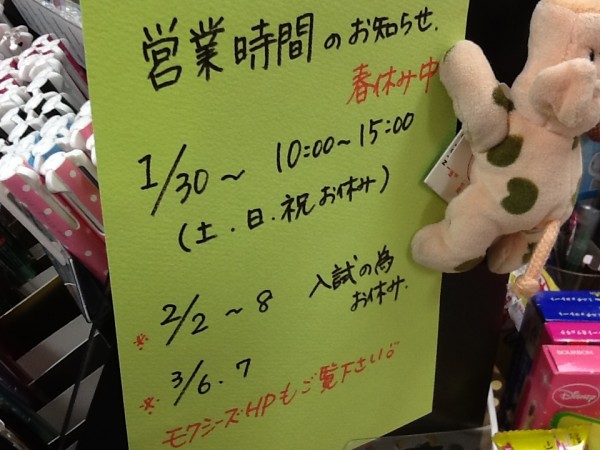 営業時間のお知らせ.
春休み中
1/30〜 10:00〜15:00
(土.日.祝お休み)
※ 2/2〜8 入試の為
お休み.
※ 3/6.7
モクシーズHPもご覧下さい。
BOURBON
Disney